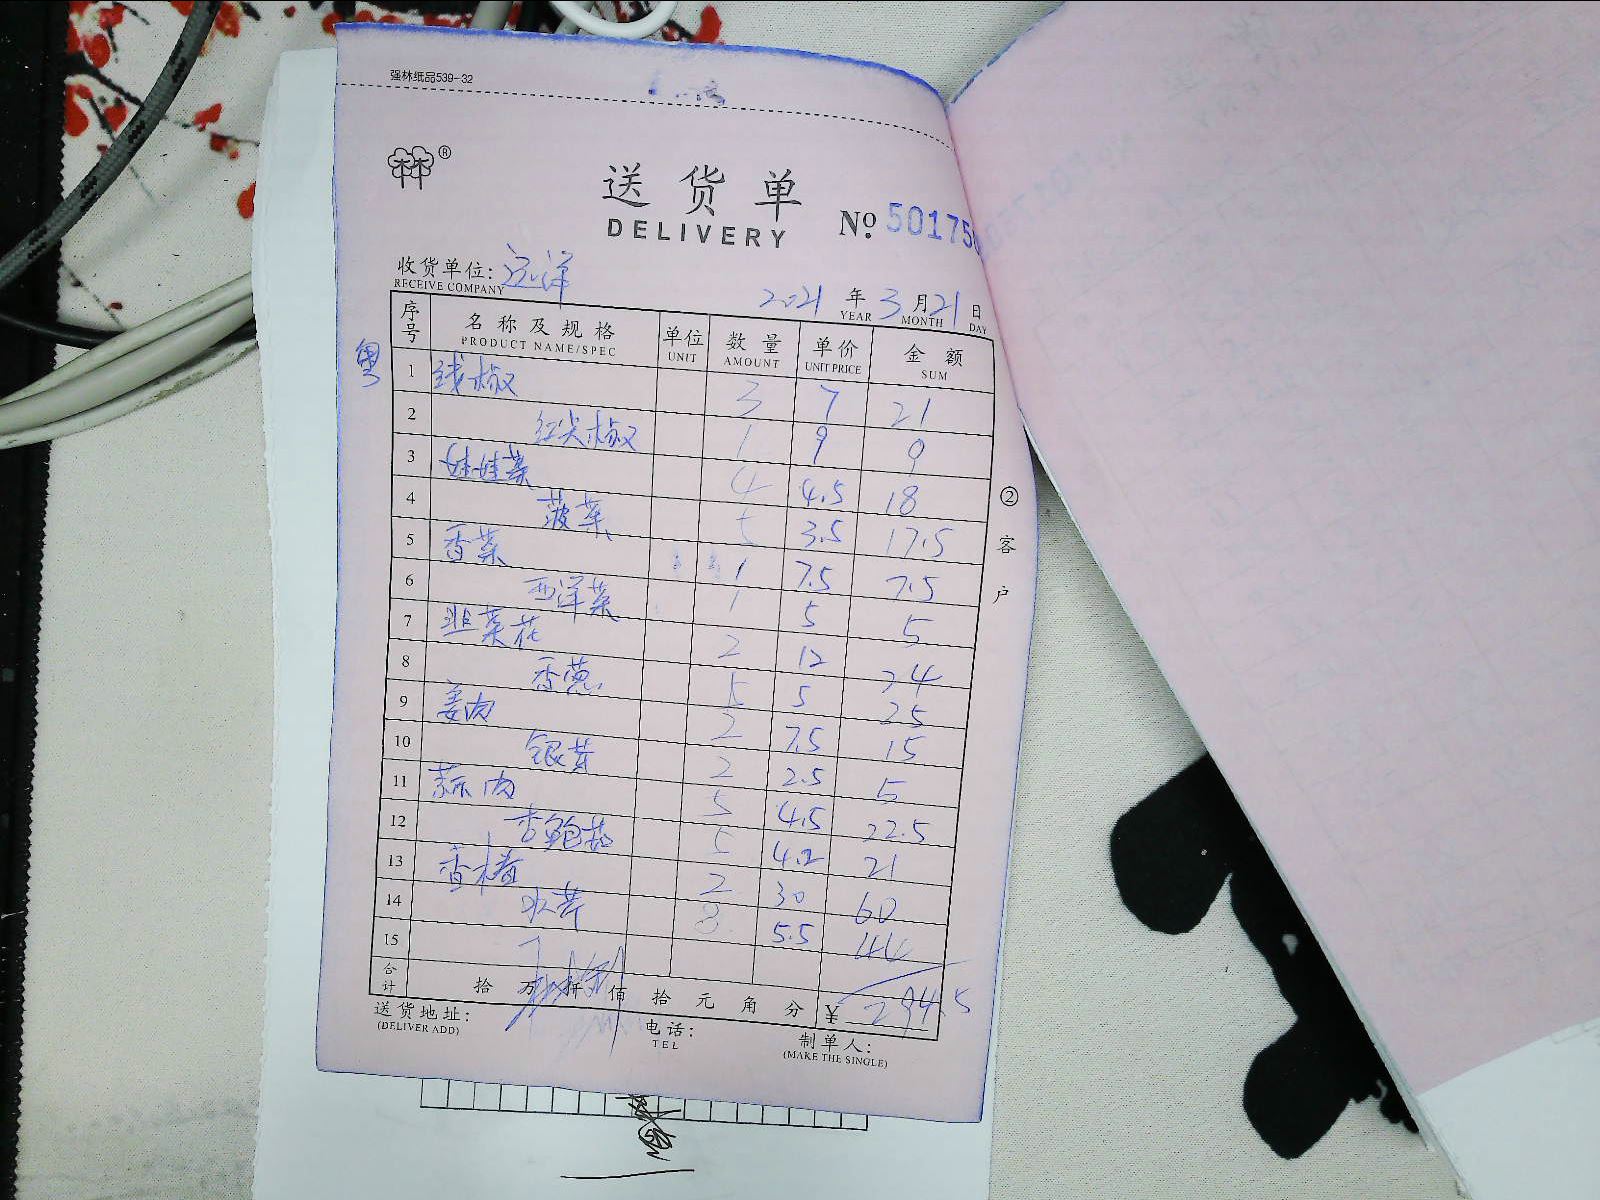 强林纸品539-32
®
送货单
DELIVERY
№ 50175
收货单位: 远洋
RECEIVE COMPANY
2021 年 3 月 21 日
YEAR MONTH DAY
序号 名称及规格 单位 数量 单价 金额
PRODUCT NAME/SPEC UNIT AMOUNT UNIT PRICE SUM
粤
1 线椒 3 7 21
2 红尖椒 1 9 9
3 娃娃菜 4 4.5 18
4 菠菜 5 3.5 17.5
5 香菜 1 7.5 7.5
6 西洋菜 1 5 5
7 韭菜花 2 12 24
8 香葱 5 5 25
9 姜肉 2 7.5 15
10 银芽 2 2.5 5
11 蒜肉 5 4.5 22.5
12 杏鲍菇 5 4.2 21
13 香椿 2 30 60
14 水芹 8 5.5 44
15
合计 拾 万 仟 佰 拾 元 角 分 ¥ 294.5
送货地址:
(DELIVER ADD)
电话:
TEL
制单人:
(MAKE THE SINGLE)
②客户